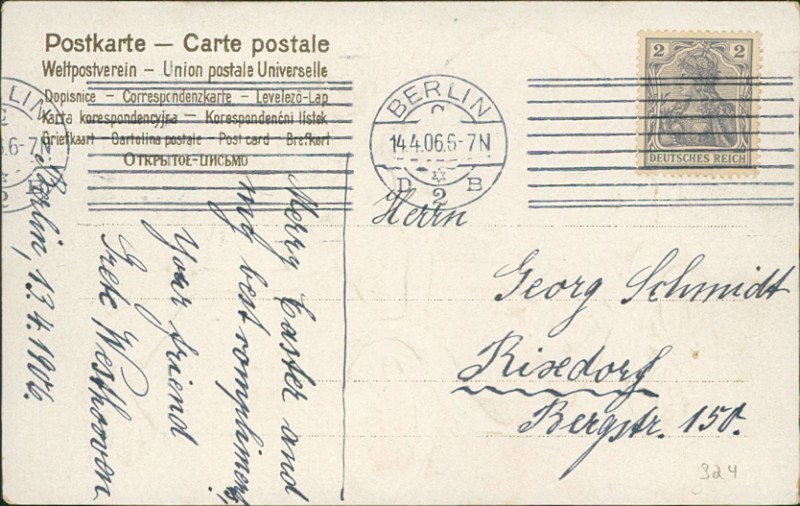 Postkarte — Carte postale
Weltpostverein — Union postale Universelle
Dopisnice — Correspondenzkarte — Levelező-Lap
Karta korespondencyjna — Korespondenční lístek
Briefkaart — Cartolina postale — Post card — Brefkort
ОТКРЫТОЕ-ПИСЬМО
LIN
6-7N
BERLIN
14.4.06.6-7N
2
B
2 2
DEUTSCHES REICH
Berlin, 13.4.1906.
Merry Easter and
my best compliments,
Your friend
Grete Westhoven
Herrn
Georg Schmidt
Rixdorf
Bergstr. 150.
324